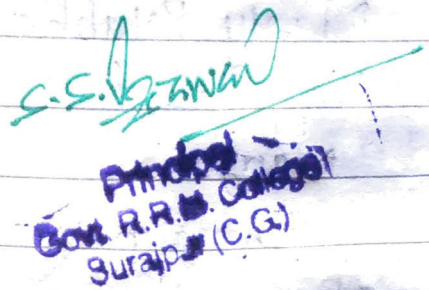 S.S.
Principal
Govt. R.R.M. College
Surajpur (C.G.)